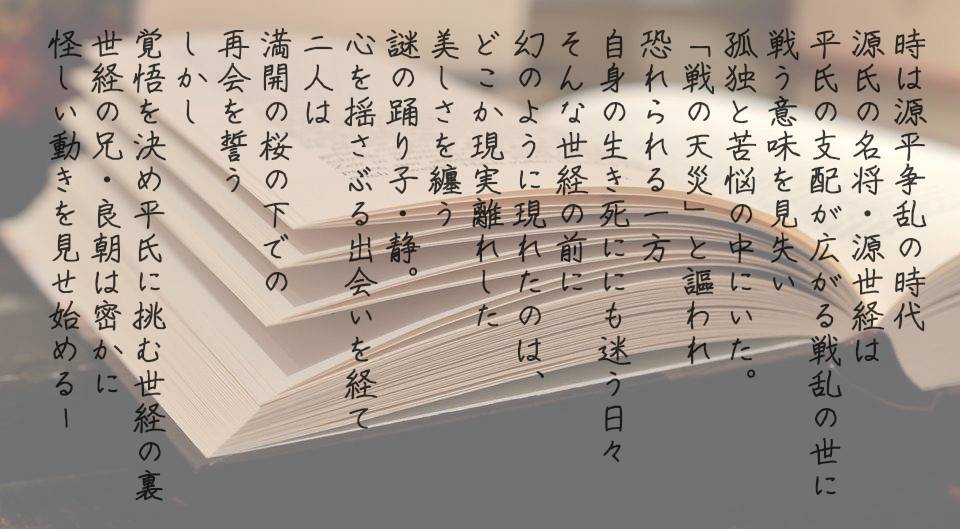 時は源平争乱の時代
源氏の名将・源世経は
平氏の支配が広がる戦乱の世に
戦う意味を見失い
孤独と苦悩の中にいた。
「戦の天災」と謳われ
恐れられる一方
自身の生き死ににも迷う日々
そんな世経の前に
幻のように現れたのは、
どこか現実離れした
美しさを纏う
謎の踊り子・静。
心を揺さぶる出会いを経て
二人は
満開の桜の下での
再会を誓う
しかし
覚悟を決め平氏に挑む世経の裏
世経の兄・良朝は密かに
怪しい動きを見せ始めるー